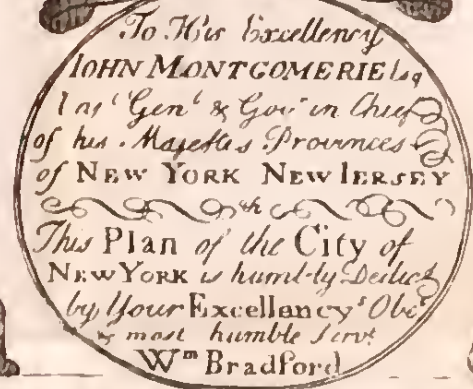 To His Excellency
IOHN MONTGOMERIE Esq
Capt Genl & Govr in Chief
of his Majesties Provinces &c
of NEW YORK NEW IERSEY
This Plan of the City of
NEW YORK is humbly Dedicd
by Your Excellencys Obt
& most humble Servt
Wm Bradford